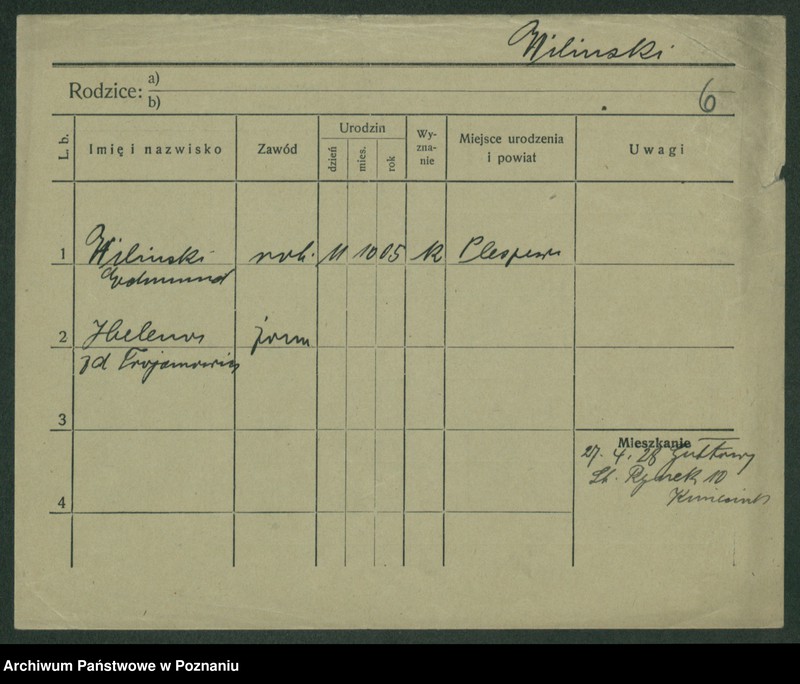 Wilinski
Rodzice: a)
b)
6
L. b.
Imię i nazwisko
Zawód
Urodzin
dzień
mies.
rok
Wy-
zna-
nie
Miejsce urodzenia
i powiat
Uwagi
1
Wilinski
Edmund
rob.
11
10
05
Pleszew
2
Helena
Trojanowicz
żona
3
Mieszkanie
27. 4. 28
St. Rynek 10
4
Archiwum Państwowe w Poznaniu